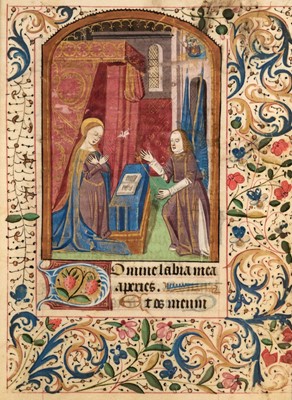 Domine labia mea
aperies.
et os meum